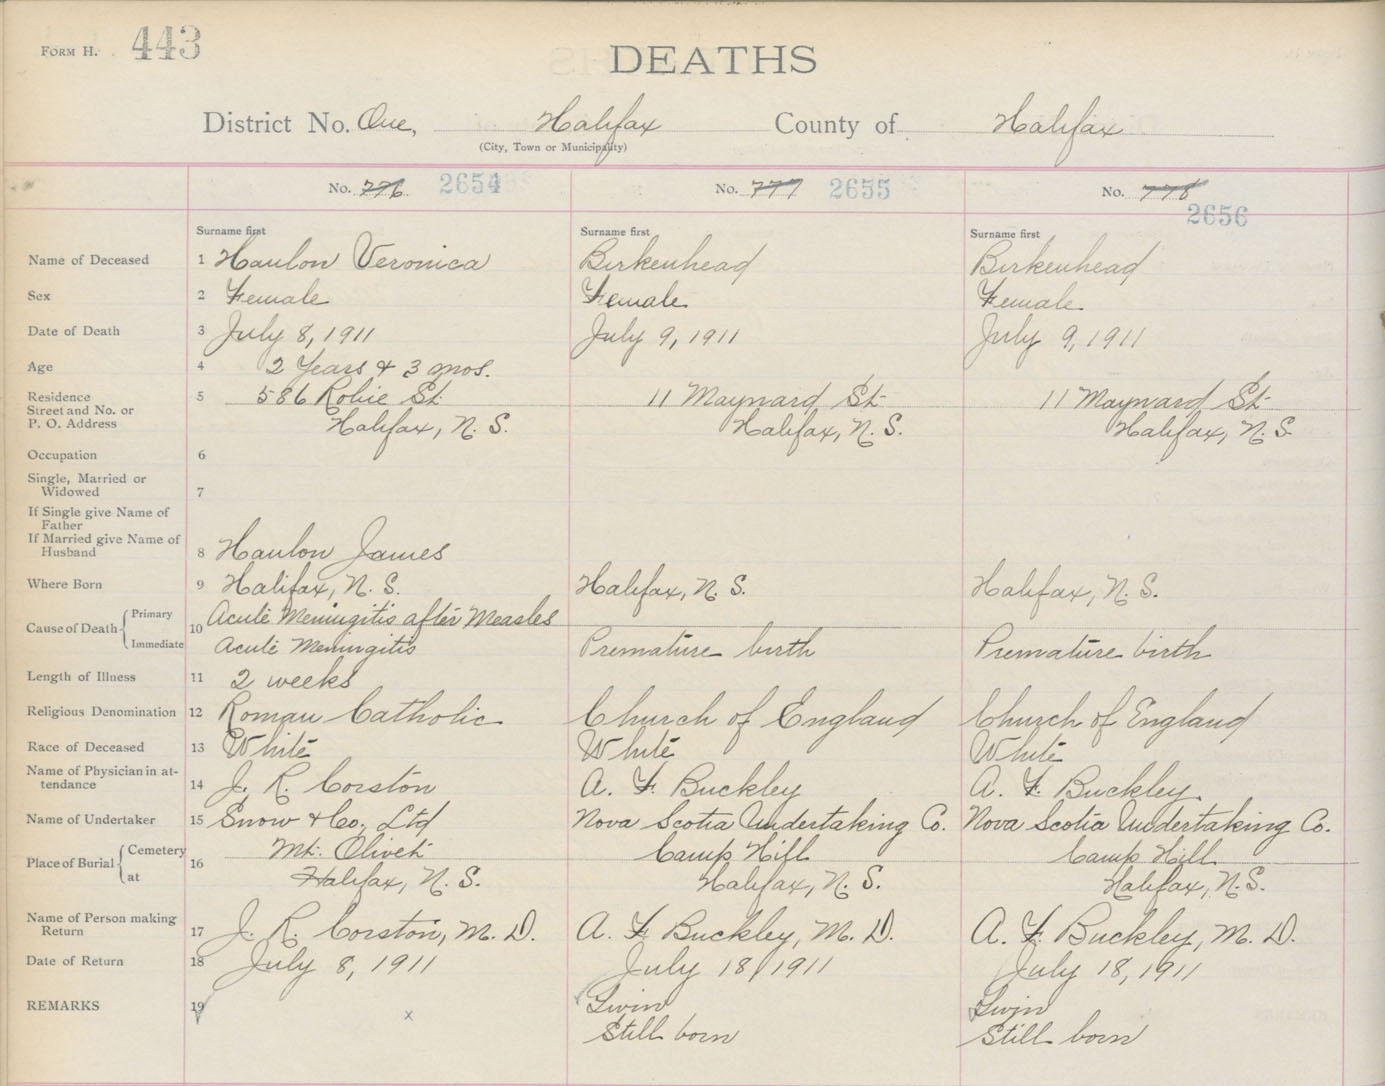 FORM H. 443
DEATHS
District No. One, Halifax County of Halifax
(City, Town or Municipality)
No. 776 2654 No. 777 2655 No. 778 2656
Surname first Surname first Surname first
Name of Deceased 1 Hanlon Veronica Birkenhead Birkenhead
Sex 2 Female Female Female
Date of Death 3 July 8, 1911 July 9, 1911 July 9, 1911
Age 4 2 Years & 3 mos.
Residence 5 586 Robie St. 11 Maynard St. 11 Maynard St.
Street and No. or
P. O. Address Halifax, N. S. Halifax, N. S. Halifax, N. S.
Occupation 6
Single, Married or
Widowed 7
If Single give Name of
Father
If Married give Name of
Husband 8 Hanlon James
Where Born 9 Halifax, N. S. Halifax, N. S. Halifax, N. S.
Cause of Death Primary 10 Acute Meningitis after Measles
Immediate Acute Meningitis Premature birth Premature birth
Length of Illness 11 2 weeks
Religious Denomination 12 Roman Catholic Church of England Church of England
Race of Deceased 13 White White White
Name of Physician in at-
tendance 14 J. R. Corston A. F. Buckley A. F. Buckley
Name of Undertaker 15 Snow & Co, Ltd Nova Scotia Undertaking Co. Nova Scotia Undertaking Co.
Place of Burial Cemetery 16 Mt. Olivet Camp Hill Camp Hill
at Halifax, N. S. Halifax, N. S. Halifax, N. S.
Name of Person making
Return 17 J. R. Corston, M. D. A. F. Buckley, M. D. A. F. Buckley, M. D.
Date of Return 18 July 8, 1911 July 18, 1911 July 18, 1911
REMARKS 19 x Twin Twin
Still born Still born